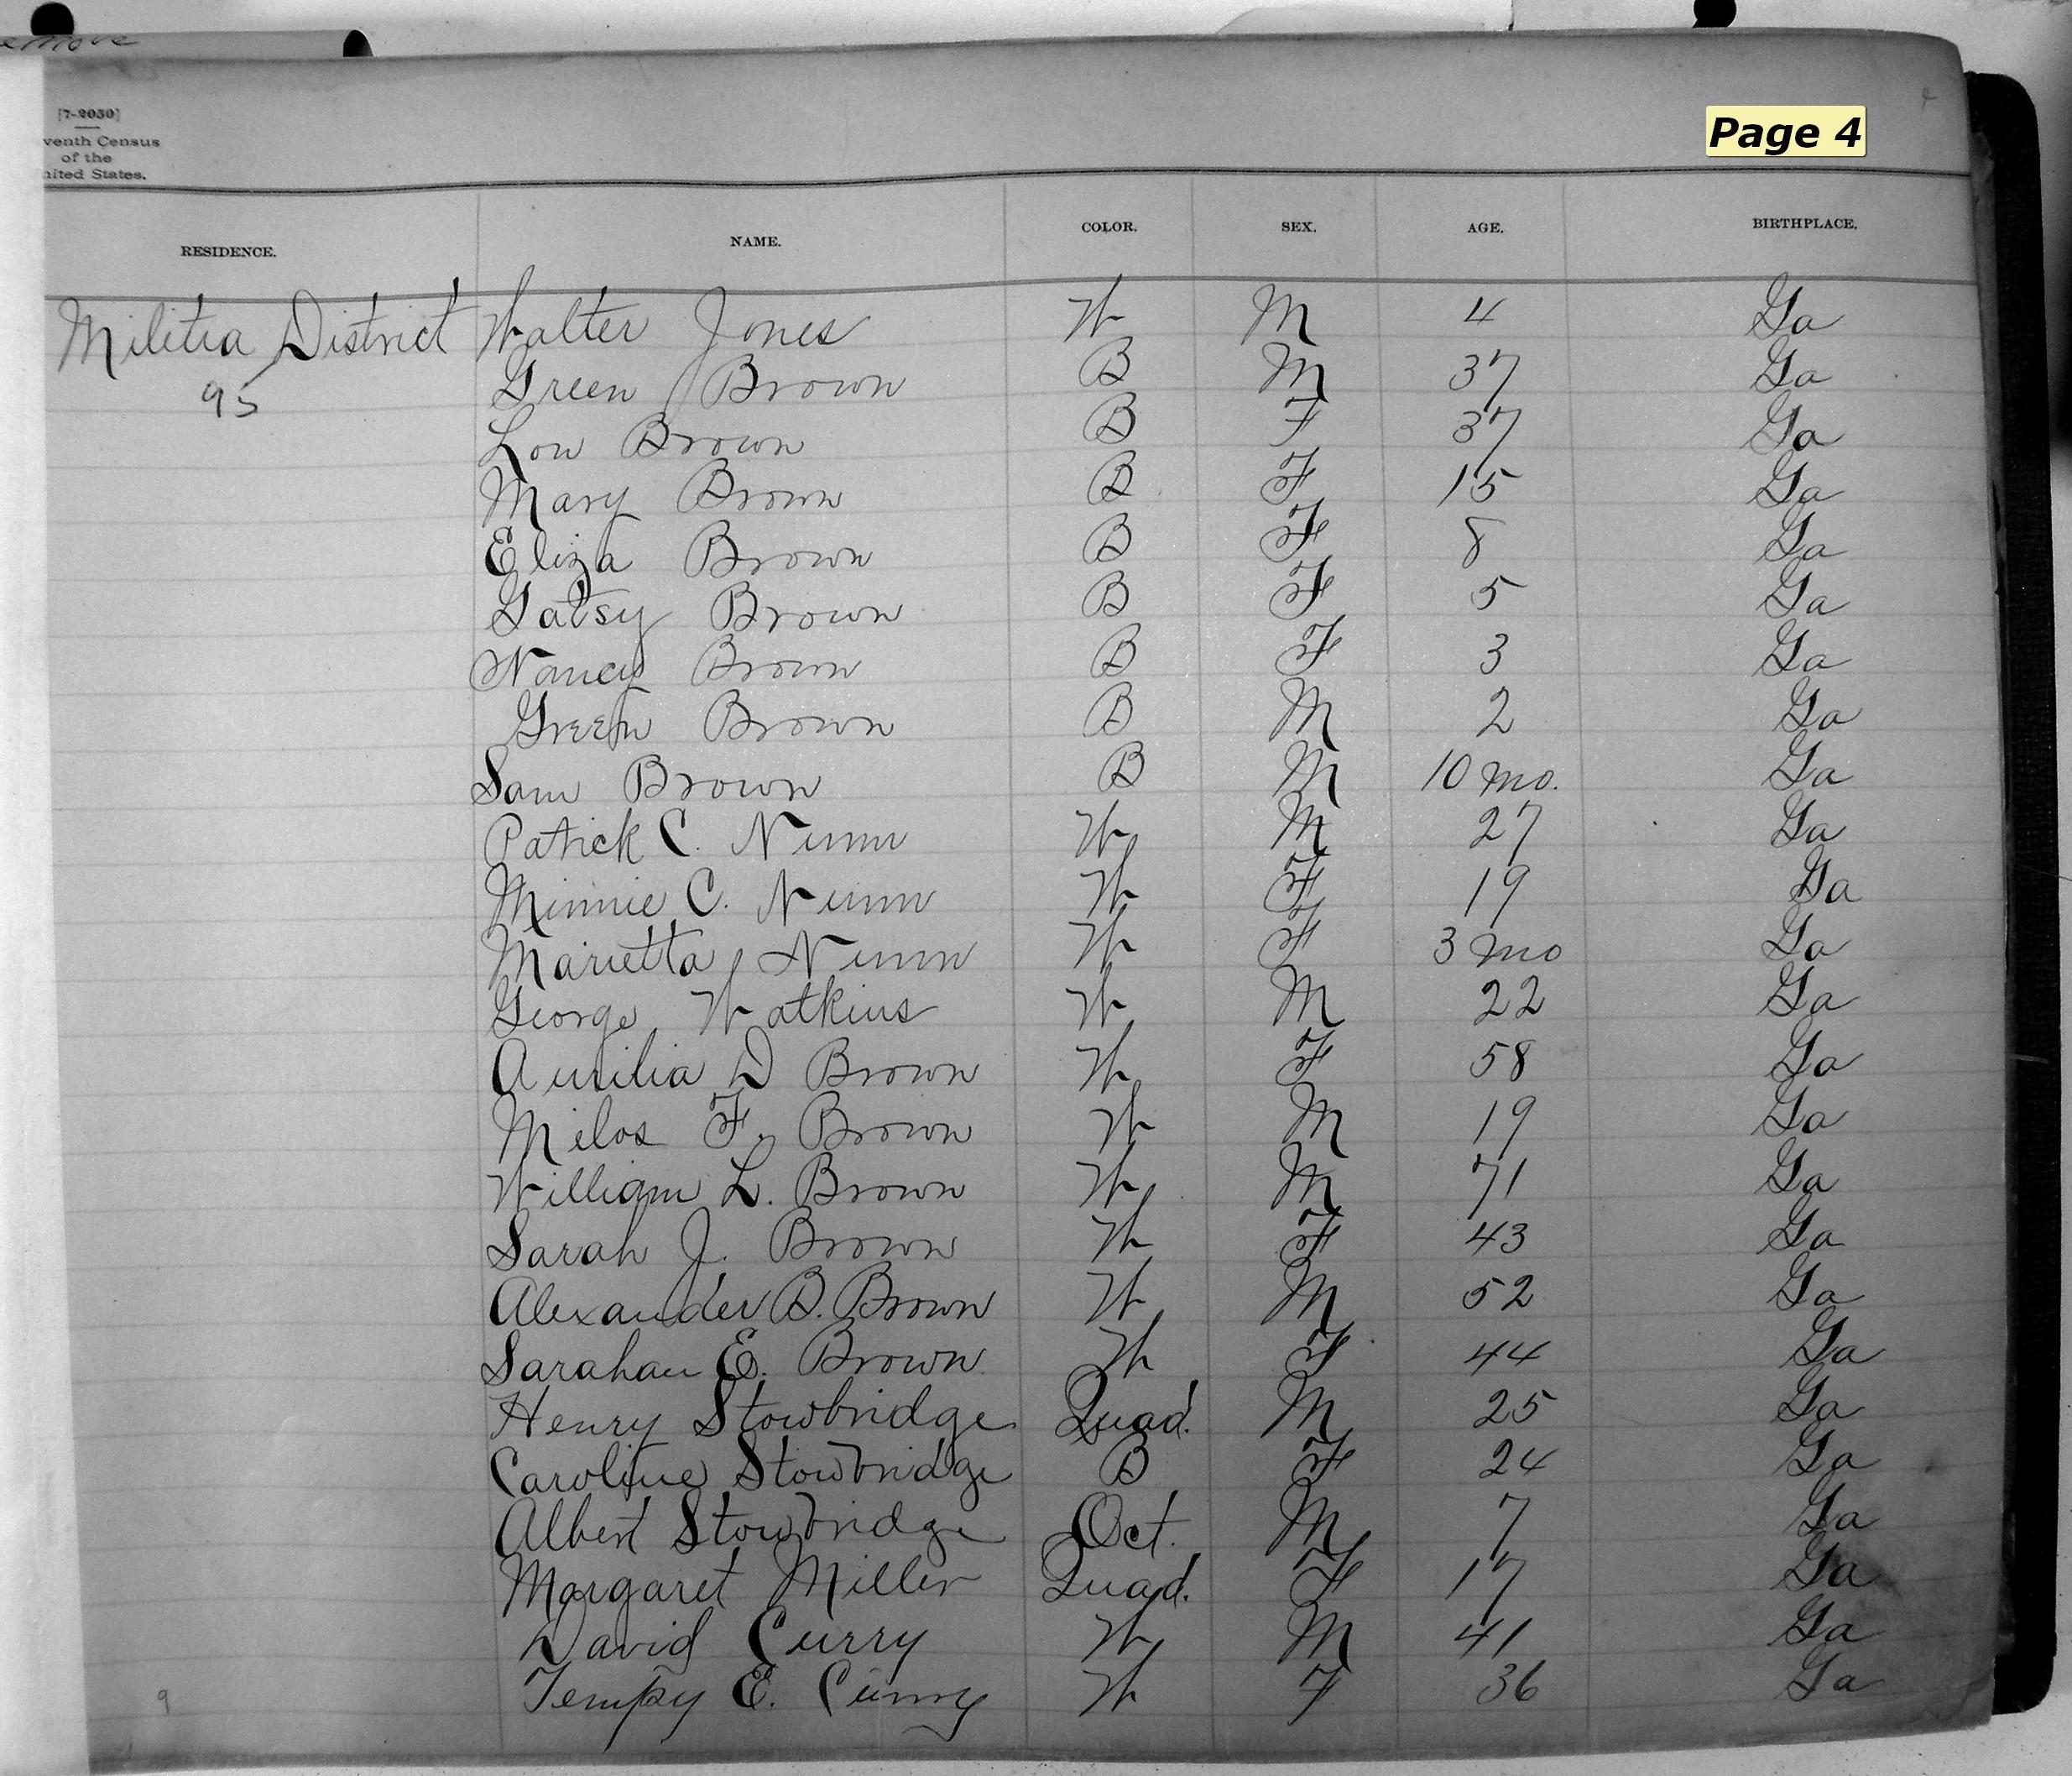 emove
[7-2050]
venth Census
of the
nited States.
Page 4
4
RESIDENCE. NAME. COLOR. SEX. AGE. BIRTHPLACE.
Militia District Walter Jones W M 4 Ga
95 Green Brown B M 37 Ga
Lou Brown B F 37 Ga
Mary Brown B F 15 Ga
Eliza Brown B F 8 Ga
Gatsy Brown B F 5 Ga
Nancy Brown B F 3 Ga
Green Brown B M 2 Ga
Sam Brown B M 10 mo. Ga
Patrick C. Nunn W M 27 Ga
Minnie C. Nunn W F 19 Ga
Marietta Nunn W F 3 mo Ga
George Watkins W M 22 Ga
Aurilia D Brown W F 58 Ga
Milos F. Brown W M 19 Ga
William L. Brown W M 71 Ga
Sarah J. Brown W F 43 Ga
Alexander B. Brown W M 52 Ga
Sarahan E. Brown W F 44 Ga
Henry Stowbridge Quad. M 25 Ga
Caroline Stowbridge B F 24 Ga
Albert Stowbridge Oct. M 7 Ga
Margaret Miller Quad. F 17 Ga
David Curry W M 41 Ga
Tempy E. Curry W F 36 Ga
9